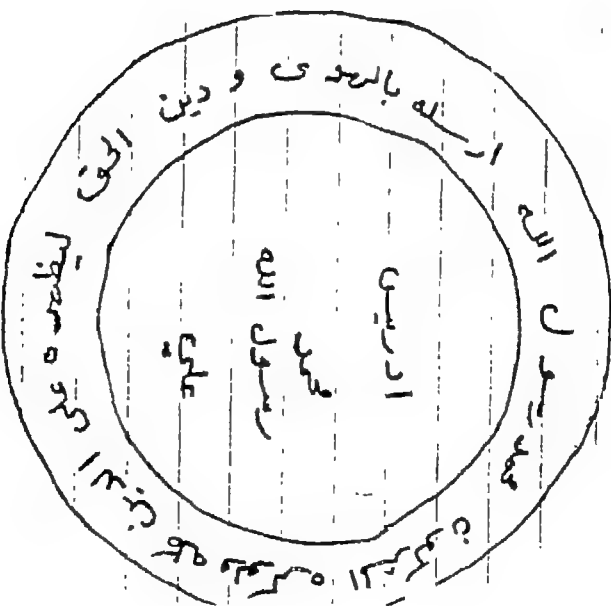 محمد رسول الله ارسله بالهدى و دين الحق ليظهره على الدين كله ولو كره المشركون
ادريس
محمد
رسول الله
علي